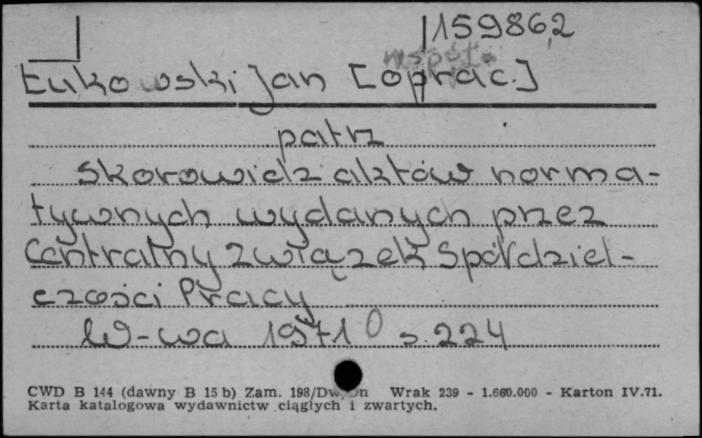 159862
współ.
Łukowski Jan [oprac.]
patrz
Skorowidz aktów norma-
tywnych wydanych przez
Centralny Związek Spółdziel-
czości Pracy
W-wa 1971 s. 224
CWD B 144 (dawny B 15 b) Zam. 198/Dw/Dn Wrak 239 - 1.660.000 - Karton IV.71.
Karta katalogowa wydawnictw ciągłych i zwartych.